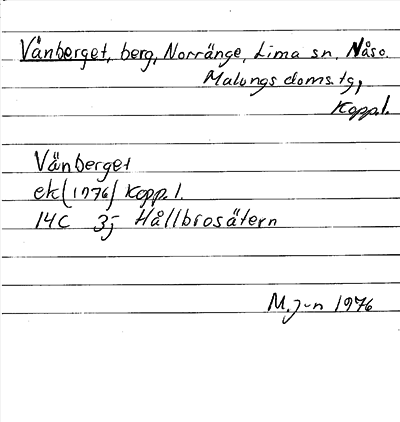 Vånberget, berg, Norränge, Lima sn. Nåso.
Malungs doms.tg,
Kopp.l.
Vånberget
ek (1976) Kopp.l.
14C 3j Hållbrosätern
M.J-n 1976